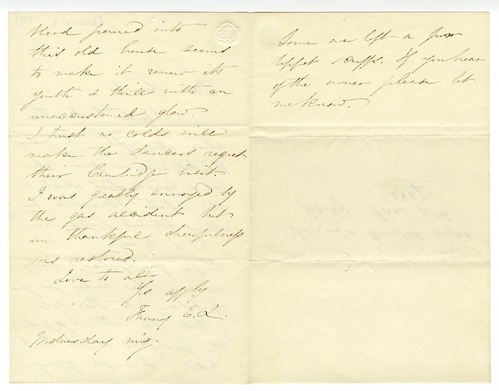 blood poured into
this old house seems
to make it renew its
youth & thrill with an
unaccustomed glow.
I trust no colds will
make the dancers regret
their Cambridge visit.
I was greatly annoyed by
the gas accident but
am thankful cheerfulness
was restored.
Love to all.
Yrs affly
Fanny E. L.
Wednesday mg.
Some one left a fur
tippet & cuffs. If you hear
of the owner please let
me know.